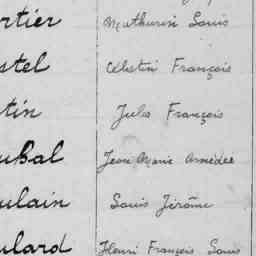 rtier Mathurin Louis
stel Célestin François
tin Jules François
uBal Jean Marie Amédée
ulain Louis Jérôme
ulard Henri François Louis